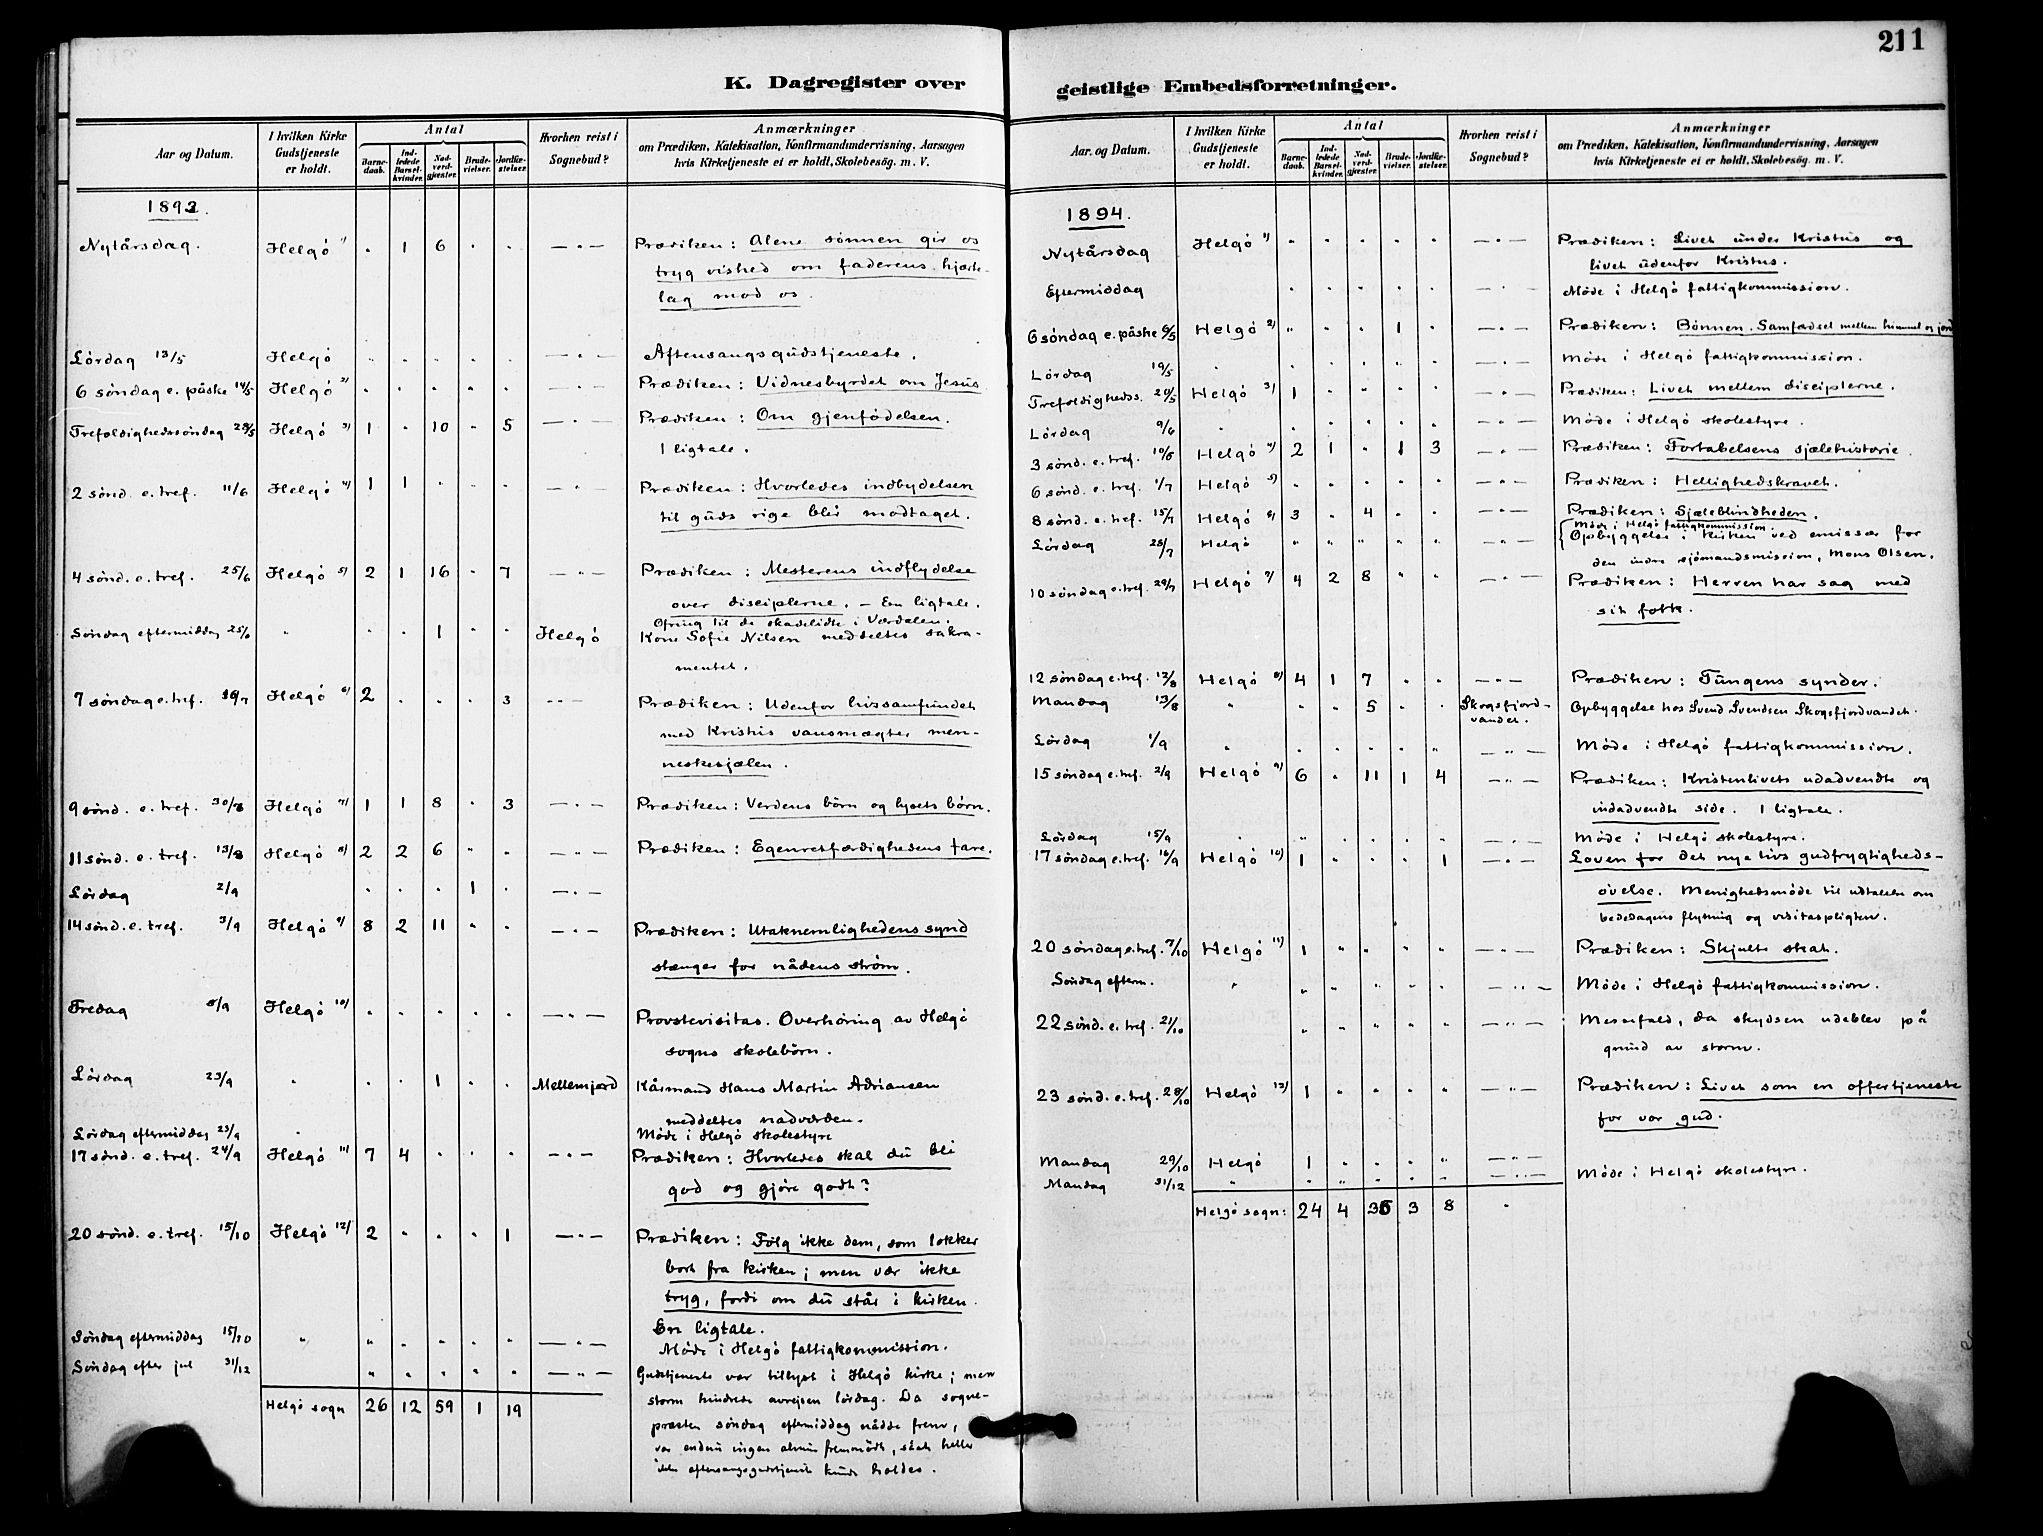 211
K. Dagregister over
Aar og Datum. I hvilken Kirke Gudstjeneste er holdt. Antal Barnedaab. Indledede Barselkvinder. Nadverdgjæster. Brudevielser. Jordfæstelser. Hvorhen reist i Sognebud? Anmærkninger om Prædiken, Katekisation, Konfirmandundervisning, Aarsagen hvis Kirketjeneste ei er holdt, Skolebesög. m. V.
1893.
Nytårsdag. Helgö 1) " 1 6 " " — " — Prædiken: Alene sönnen gir os
tryg vished om faderens hjerte-
lag mod os.
Lördag 13/5 Helgö " " " " " — " — Aftensangsgudstjeneste.
6 söndag e. påske 14/5 Helgö 2) " " " " " — " — Prædiken: Vidnesbyrdet om Jesus
Trefoldighedssöndag 28/5 Helgö 3) 1 " 10 " 5 — " — Prædiken: Om gjenfödelsen.
1 ligtale.
2 sönd. e. tref. 11/6 Helgö 4) 1 1 " " " — " — Prædiken: Hvorledes indbydelsen
til guds rige blir modtaget.
4 sönd. e. tref. 25/6 Helgö 5) 2 1 16 " 7 — " — Prædiken: Mesterens indflydelse
over disciplerne. — En ligtale.
Ofring til de skadelidte i Værdalen.
Söndag eftermiddag 25/6 " " " 1 " " Helgö Kone Sofie Nilsen meddeltes sakra-
mentet.
7 söndag e. tref. 16/7 Helgö 6) 2 " " " 3 — " — Prædiken: Udenfor livssamfundet
med Kristus vansmægter men-
neskesjælen.
9 sönd. e. tref. 30/7 Helgö 7) 1 1 8 " 3 — " — Prædiken: Verdens börn og lysets börn.
11 sönd. e. tref. 13/8 Helgö 8) 2 2 6 " " — " — Prædiken: Egenretfærdighedens fare.
Lördag 2/9 " " " 1 " — " —
14 sönd. e. tref. 3/9 Helgö 9) 8 2 11 " " — " — Prædiken: Utaknemlighedens synd
stænger for nådens ström.
Fredag 8/9 Helgö 10) " " " " " — " — Provstevisitas. Overhöring av Helgö
sogns skolebörn.
Lördag 23/9 " " " 1 " " Mellemjord Kårmand Hans Martin Adriansen
meddeltes nadverden.
Lördag eftermiddag 23/9 " Möde i Helgö skolestyre
17 sönd. e. tref. 24/9 Helgö 11) 7 4 " " " — " — Prædiken: Hvorledes skal du bli
god og gjöre godt?
20 sönd. e. tref. 15/10 Helgö 12) 2 " " " 1 — " — Prædiken: Fölg ikke dem, som lokker
bort fra kirken; men vær ikke
tryg, fordi om du står i kirken.
En ligtale.
Söndag eftermiddag 15/10 " " " " " " — " — Möde i Helgö fattigkommission.
Söndag efter jul 31/12 " " " " " — " — Gudstjeneste var tillyst i Helgö kirke; men
storm hindrede avreisen lördag. Da sogne-
Helgö sogn 26 12 59 1 19
præsten söndag eftermiddag nådde frem,
var endnu ingen almue fremmödt, så at heller
ikke aftensangsgudstjeneste kunde holdes.
geistlige Embedsforretninger.
Aar og Datum. I hvilken Kirke Gudstjeneste er holdt. Antal Barnedaab. Indledede Barselkvinder. Nadverdgjæster. Brudevielser. Jordfæstelser. Hvorhen reist i Sognebud? Anmærkninger om Prædiken, Katekisation, Konfirmandundervisning, Aarsagen hvis Kirketjeneste ei er holdt, Skolebesög. m. V.
1894.
Nytårsdag Helgö 1) " " " " " — " — Prædiken: Livet under Kristus og
livet udenfor Kristus.
Eftermiddag " " " " " — " — Möde i Helgö fattigkommission.
6 söndag e. påske 6/5 Helgö 2) " " " 1 " — " — Prædiken: Bönnen. Samfærdsel mellem himmel og jord
Lördag 19/5 " " " " " " — " — Möde i Helgö fattigkommission.
Trefoldigheds. 20/5 Helgö 3) 1 " " " " — " — Prædiken: Livet mellem disciplerne.
Lördag 9/6 " " " " " " — " — Möde i Helgö skolestyre.
3 sönd. e. tref. 10/6 Helgö 4) 2 1 " 1 3 — " — Prædiken: Fortabelsens sjælehistorie.
6 sönd. e. tref. 1/7 Helgö 5) " " " " " — " — Prædiken: Hellighedskravet.
8 sönd. e. tref. 15/7 Helgö 6) 3 " 4 " " — " — Prædiken: Sjæleblindheden.
Möde i Helgö fattigkommission.
Lördag 28/7 Helgö " " " " " — " — Opbyggelse i kirken ved emissær for
den indre sjömandsmission, Mons Olsen.
10 söndag e. tref. 29/7 Helgö 7) 4 2 8 " " — " — Prædiken: Herren har sag med
sit folk.
12 söndag e. tref. 12/8 Helgö 8) 4 1 7 " " — " — Prædiken: Tungens synder.
Mandag 13/8 " " " 5 " " Skogsfjord-
vandet. Opbyggelse hos Svend Svendsen Skogsfjordvandet.
Lördag 1/9 " " " " " " — " — Möde i Helgö fattigkommission.
15 söndag e. tref. 2/9 Helgö 9) 6 " 11 1 4 — " — Prædiken: Kristenlivets udadvendte og
indadvendte side. 1 ligtale.
Lördag 15/9 " " " " " " — " — Möde i Helgö skolestyre.
17 söndag e. tref. 16/9 Helgö 10) 1 " " " 1 — " — Loven for det nye livs gudfrygtigheds-
övelse. Menighedsmöde til udtalelse om
bededagens flytning og visitaspligten.
20 söndag e. tref. 7/10 Helgö 11) 1 " " " " — " — Prædiken: Skjulte skat.
Söndag efterm. " " " " " " — " — Möde i Helgö fattigkommission.
22 sönd. e. tref. 21/10 " " " " " — " — Messefald, da skydsen udeblev på
grund av storm.
23 sönd. e. tref. 28/10 Helgö 12) 1 " " " " — " — Prædiken: Livet som en offertjeneste
for vor gud.
Mandag 29/10 Helgö 1 " " " " — " —
Mandag 31/12 " " " " " " — " — Möde i Helgö skolestyre.
Helgö sogn: 24 4 35 3 8 "